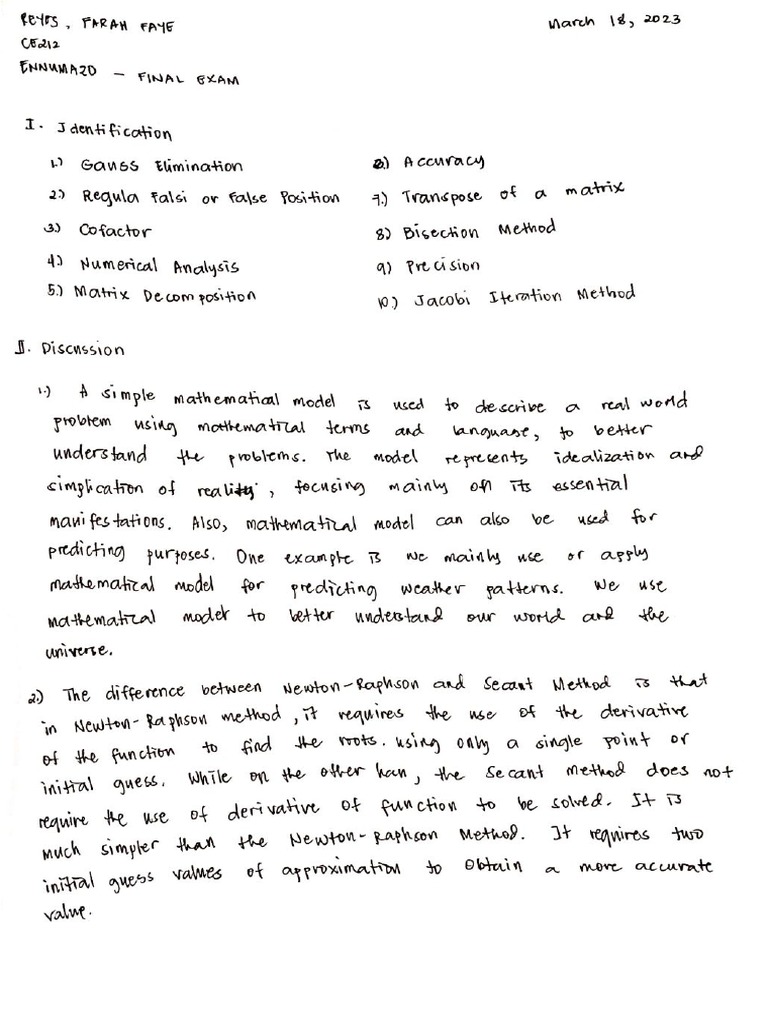 REYES, FARAH FAYE
March 18, 2023
CE212
ENNUMA20 - FINAL EXAM
I. Identification
1.) Gauss Elimination
2.) Regula Falsi or False Position
3.) Cofactor
4.) Numerical Analysis
5.) Matrix Decomposition
6.) Accuracy
7.) Transpose of a matrix
8) Bisection Method
9) Precision
10.) Jacobi Iteration Method
II. Discussion
1.) A simple mathematical model is used to describe a real world
problem using mathematical terms and language, to better
understand the problems. The model represents idealization and
simplication of reality, focusing mainly on its essential
manifestations. Also, mathematical model can also be used for
predicting purposes. One example is we mainly use or apply
mathematical model for predicting weather patterns. We use
mathematical model to better understand our world and the
universe.
2.) The difference between Newton-Raphson and Secant Method is that
in Newton-Raphson method, it requires the use of the derivative
of the function to find the roots. using only a single point or
initial guess. While on the other han, the Secant method does not
require the use of derivative of function to be solved. It is
much simpler than the Newton-Raphson Method. It requires two
initial guess values of approximation to obtain a more accurate
value.